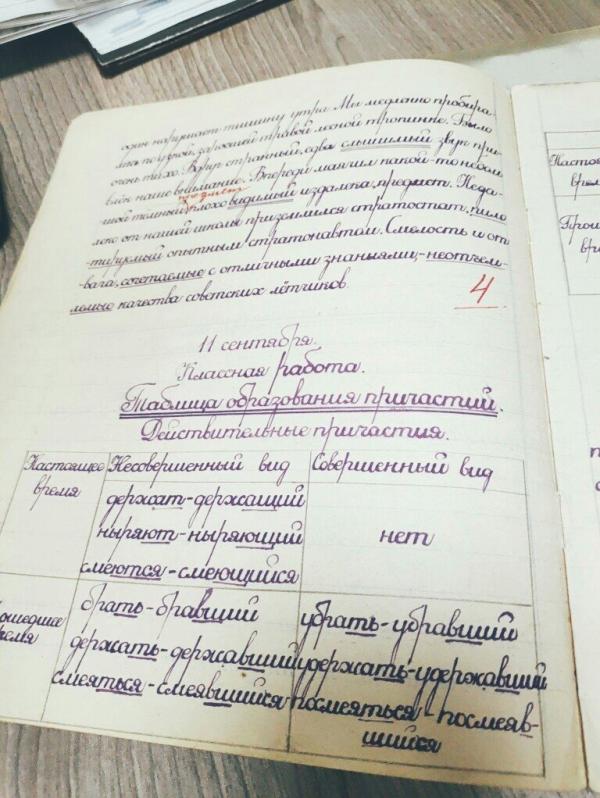 один нарушает тишину утра. Мы медленно пробира-
лись по узкой, заросшей травой лесной тропинке. Было
очень тихо. Вдруг странный, едва слышимый звук при-
влёк наше внимание. Впереди маячил какой-то неболь-
шой темный, плохо видимый издалека, предмет. Неда-
леко от нашей школы приземлился стратостат, пило-
тируемый опытным стратонавтом. Смелость и от-
вага, сочетаемые с отличными знаниями,-неотъем-
лемые качества советских лётчиков.
4
11 сентября.
Классная работа.
Таблица образования причастий.
Действительные причастия.
Настоящее время
Несовершенный вид
Совершенный вид
держат-держащий
ныряют-ныряющий
смеются-смеющийся
нет
ошедшее
ремя
брать-бравший
держать-державший
смеяться-смеявшийся
убрать-убравший
удержать-удержавший
посмеяться-посмеяв-
шийся
Настоя
врем
Прош
вре